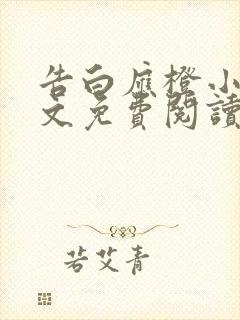 告白应橙小
文免費閱讀
若艾青